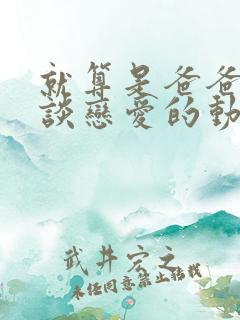 就算是爸爸
談戀愛的動
武井宏之
未经同意禁止转载